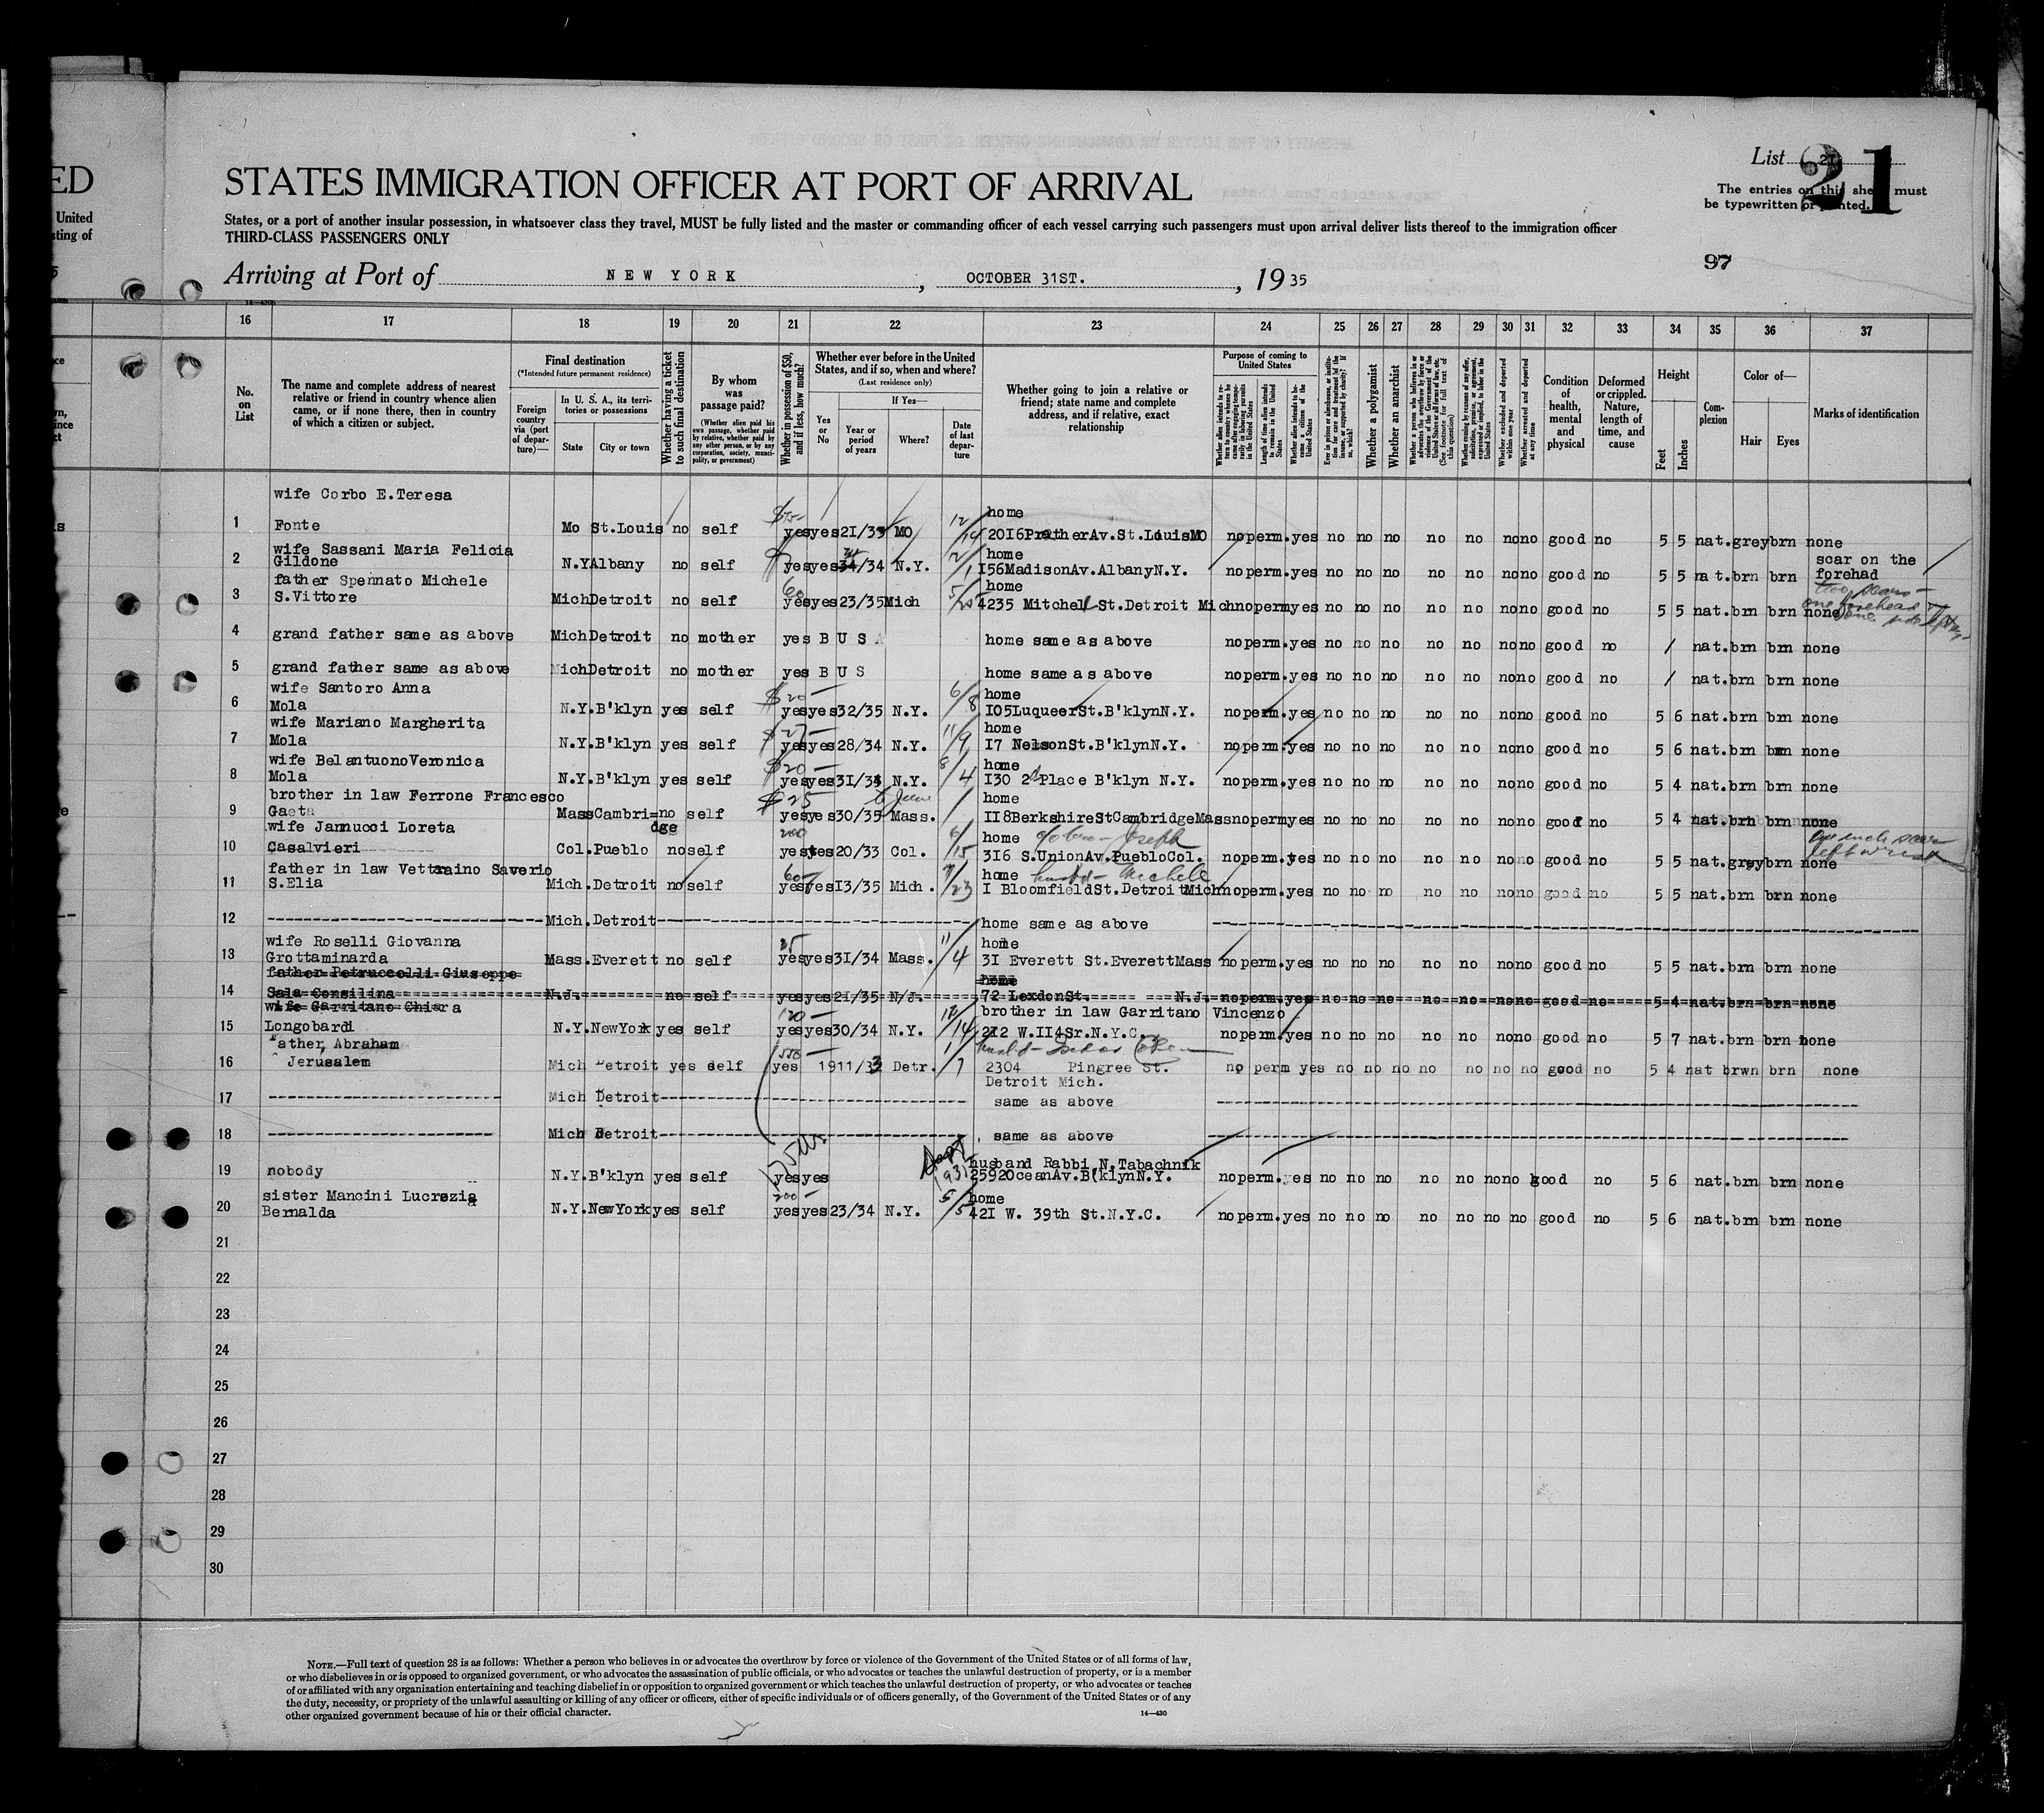 ED
United
sting of
List 21
21
The entries on this sheet must
be typewritten or printed.
STATES IMMIGRATION OFFICER AT PORT OF ARRIVAL
States, or a port of another insular possession, in whatsoever class they travel, MUST be fully listed and the master or commanding officer of each vessel carrying such passengers must upon arrival deliver lists thereof to the immigration officer
THIRD-CLASS PASSENGERS ONLY
97
Arriving at Port of NEW YORK, OCTOBER 31ST., 1935
16 17 18 19 20 21 22 23 24 25 26 27 28 29 30 31 32 33 34 35 36 37
No. on List
The name and complete address of nearest relative or friend in country whence alien came, or if none there, then in country of which a citizen or subject.
Final destination
(*Intended future permanent residence)
Foreign country via (port of departure)—
In U. S. A., its territories or possessions
State City or town
Whether having a ticket to such final destination
By whom was passage paid?
(Whether alien paid his own passage, whether paid by relative, whether paid by any other person, or by any corporation, society, municipality, or government)
Whether in possession of $50, and if less, how much?
Whether ever before in the United States, and if so, when and where?
(Last residence only)
Yes or No
If Yes—
Year or period of years
Where?
Date of last departure
Whether going to join a relative or friend; state name and complete address, and if relative, exact relationship
Purpose of coming to United States
Length of time alien intends to remain in the United States
Whether alien intends to become a citizen of the United States
Whether a polygamist
Whether an anarchist
Whether excluded and deported within one year
Whether arrested and deported at any time
Condition of health, mental and physical
Deformed or crippled. Nature, length of time, and cause
Height
Feet Inches
Complexion
Color of—
Hair Eyes
Marks of identification
wife Corbo E.Teresa home
1 Fonte Mo St.Louis no self yesyes21/33 MO 12/14 2016PratherAv.St.LouisMO noperm.yes no no no no no nono good no 5 5 nat.greybrn none
wife Sassani Maria Felicia home scar on the
2 Gildone N.YAlbany no self yesyes34/34 N.Y. 156MadisonAv.AlbanyN.Y. noperm.yes no no no no no nono good no 5 5 nat.brn brn forehad
father Spennato Michele 60 home two scars
3 S.Vittore MichDetroit no self yesyes23/35Mich 4235 Mitchell St.Detroit Mich nopermyes no no no no no nono good no 5 5 nat.brn brn none
4 grand father same as above MichDetroit no mother yes B U S A home same as above noperm.yes no no no no no nono good no / nat.brn brn none
5 grand father same as above MichDetroit no mother yes B U S home same as above noperm.yes no no no no no nono good no / nat.brn brn none
wife Santoro Anna $20— 6/8 home
6 Mola N.Y.B'klyn yes self yesyes32/35 N.Y. 105LuqueerSt.B'klynN.Y. noperm.yes no no no no no nono good no 5 6 nat.brn brn none
wife Mariano Margherita $27— 11/9 home
7 Mola N.Y.B'klyn yes self yesyes28/34 N.Y. 17 NelsonSt.B'klynN.Y. noperm.yes no no no no no nono good no 5 6 nat.brn brn none
wife BelantuonoVeronica $20— 8/4 home
8 Mola N.Y.B'klyn yes self yesyes31/34 N.Y. 130 2d Place B'klyn N.Y. noperm.yes no no no no no nono good no 5 4 nat.brn brn none
brother in law Ferrone Francesco $25 home
9 Gaeta MassCambri=dge no self yesyes30/35 Mass. 118BerkshireStCambridgeMass nopermyes no no no no no nono good no 5 4 nat.brn brn none
wife Jannucci Loreta 200 6/15 home Joseph
10 Casalvieri Col.Pueblo no self yesyes20/33 Col. 316 S.UnionAv.PuebloCol. noperm.yes no no no no no nono good no 5 5 nat.greybrn none left wrist
father in law Vettraino Saverio 60— 7/23 home husbd— Michele
11 S.Elia Mich.Detroit no self yesyes13/35 Mich. 1 BloomfieldSt.DetroitMich noperm.yes no no no no no nono good no 5 5 nat.brn brn none
12 Mich.Detroit home same as above
wife Roselli Giovanna 11/4 home
13 Grottaminarda Mass.Everett no self yesyes31/34 Mass. 31 Everett St.EverettMass noperm.yes no no no no no nono good no 5 5 nat.brn brn none
father Petruccelli Giuseppe home
14 Sala Consilina N.J. no self yesyes21/35 N/J. 72 LexdonSt. N.J. noperm.yes no no no no no nono good no 5 4 nat.brn brn none
wife Garritano Chiara 120— 12/14 brother in law Garritano Vincenzo
15 Longobardi N.Y.NewYork yes self yesyes30/34 N.Y. 212 W.114Sr.N.Y.C. noperm.yes no no no no no nono good no 5 7 nat.brn brn none
father Abraham 1500— 1/7 husbd—
16 Jerusalem Mich Detroit yes self yes 1911/33 Detr. 2304 Pingree St. no perm yes no no no no no no no good no 5 4 nat brwn brn none
Detroit Mich.
17 Mich Detroit same as above
18 Mich Detroit same as above
husband Rabbi N.Tabachnik
19 nobody N.Y.B'klyn yes self yesyes 1931 2592OceanAv.B(klynN.Y. noperm.yes no no no no no nono good no 5 6 nat.brn brn none
sister Mancini Lucrezia 200— 5/5 home
20 Bernalda N.Y.NewYorkyes self yesyes23/34 N.Y. 421 W. 39th St.N.Y.C. noperm.yes no no no no no no no good no 5 6 nat.brn brn none
21
22
23
24
25
26
27
28
29
30
NOTE.—Full text of question 28 is as follows: Whether a person who believes in or advocates the overthrow by force or violence of the Government of the United States or of all forms of law,
or who disbelieves in or is opposed to organized government, or who advocates the assassination of public officials, or who advocates or teaches the unlawful destruction of property, or is a member
of or affiliated with any organization entertaining and teaching disbelief in or opposition to organized government or which teaches the unlawful destruction of property, or who advocates or teaches
the duty, necessity, or propriety of the unlawful assaulting or killing of any officer or officers, either of specific individuals or of officers generally, of the Government of the United States or of any
other organized government because of his or their official character.
14—430